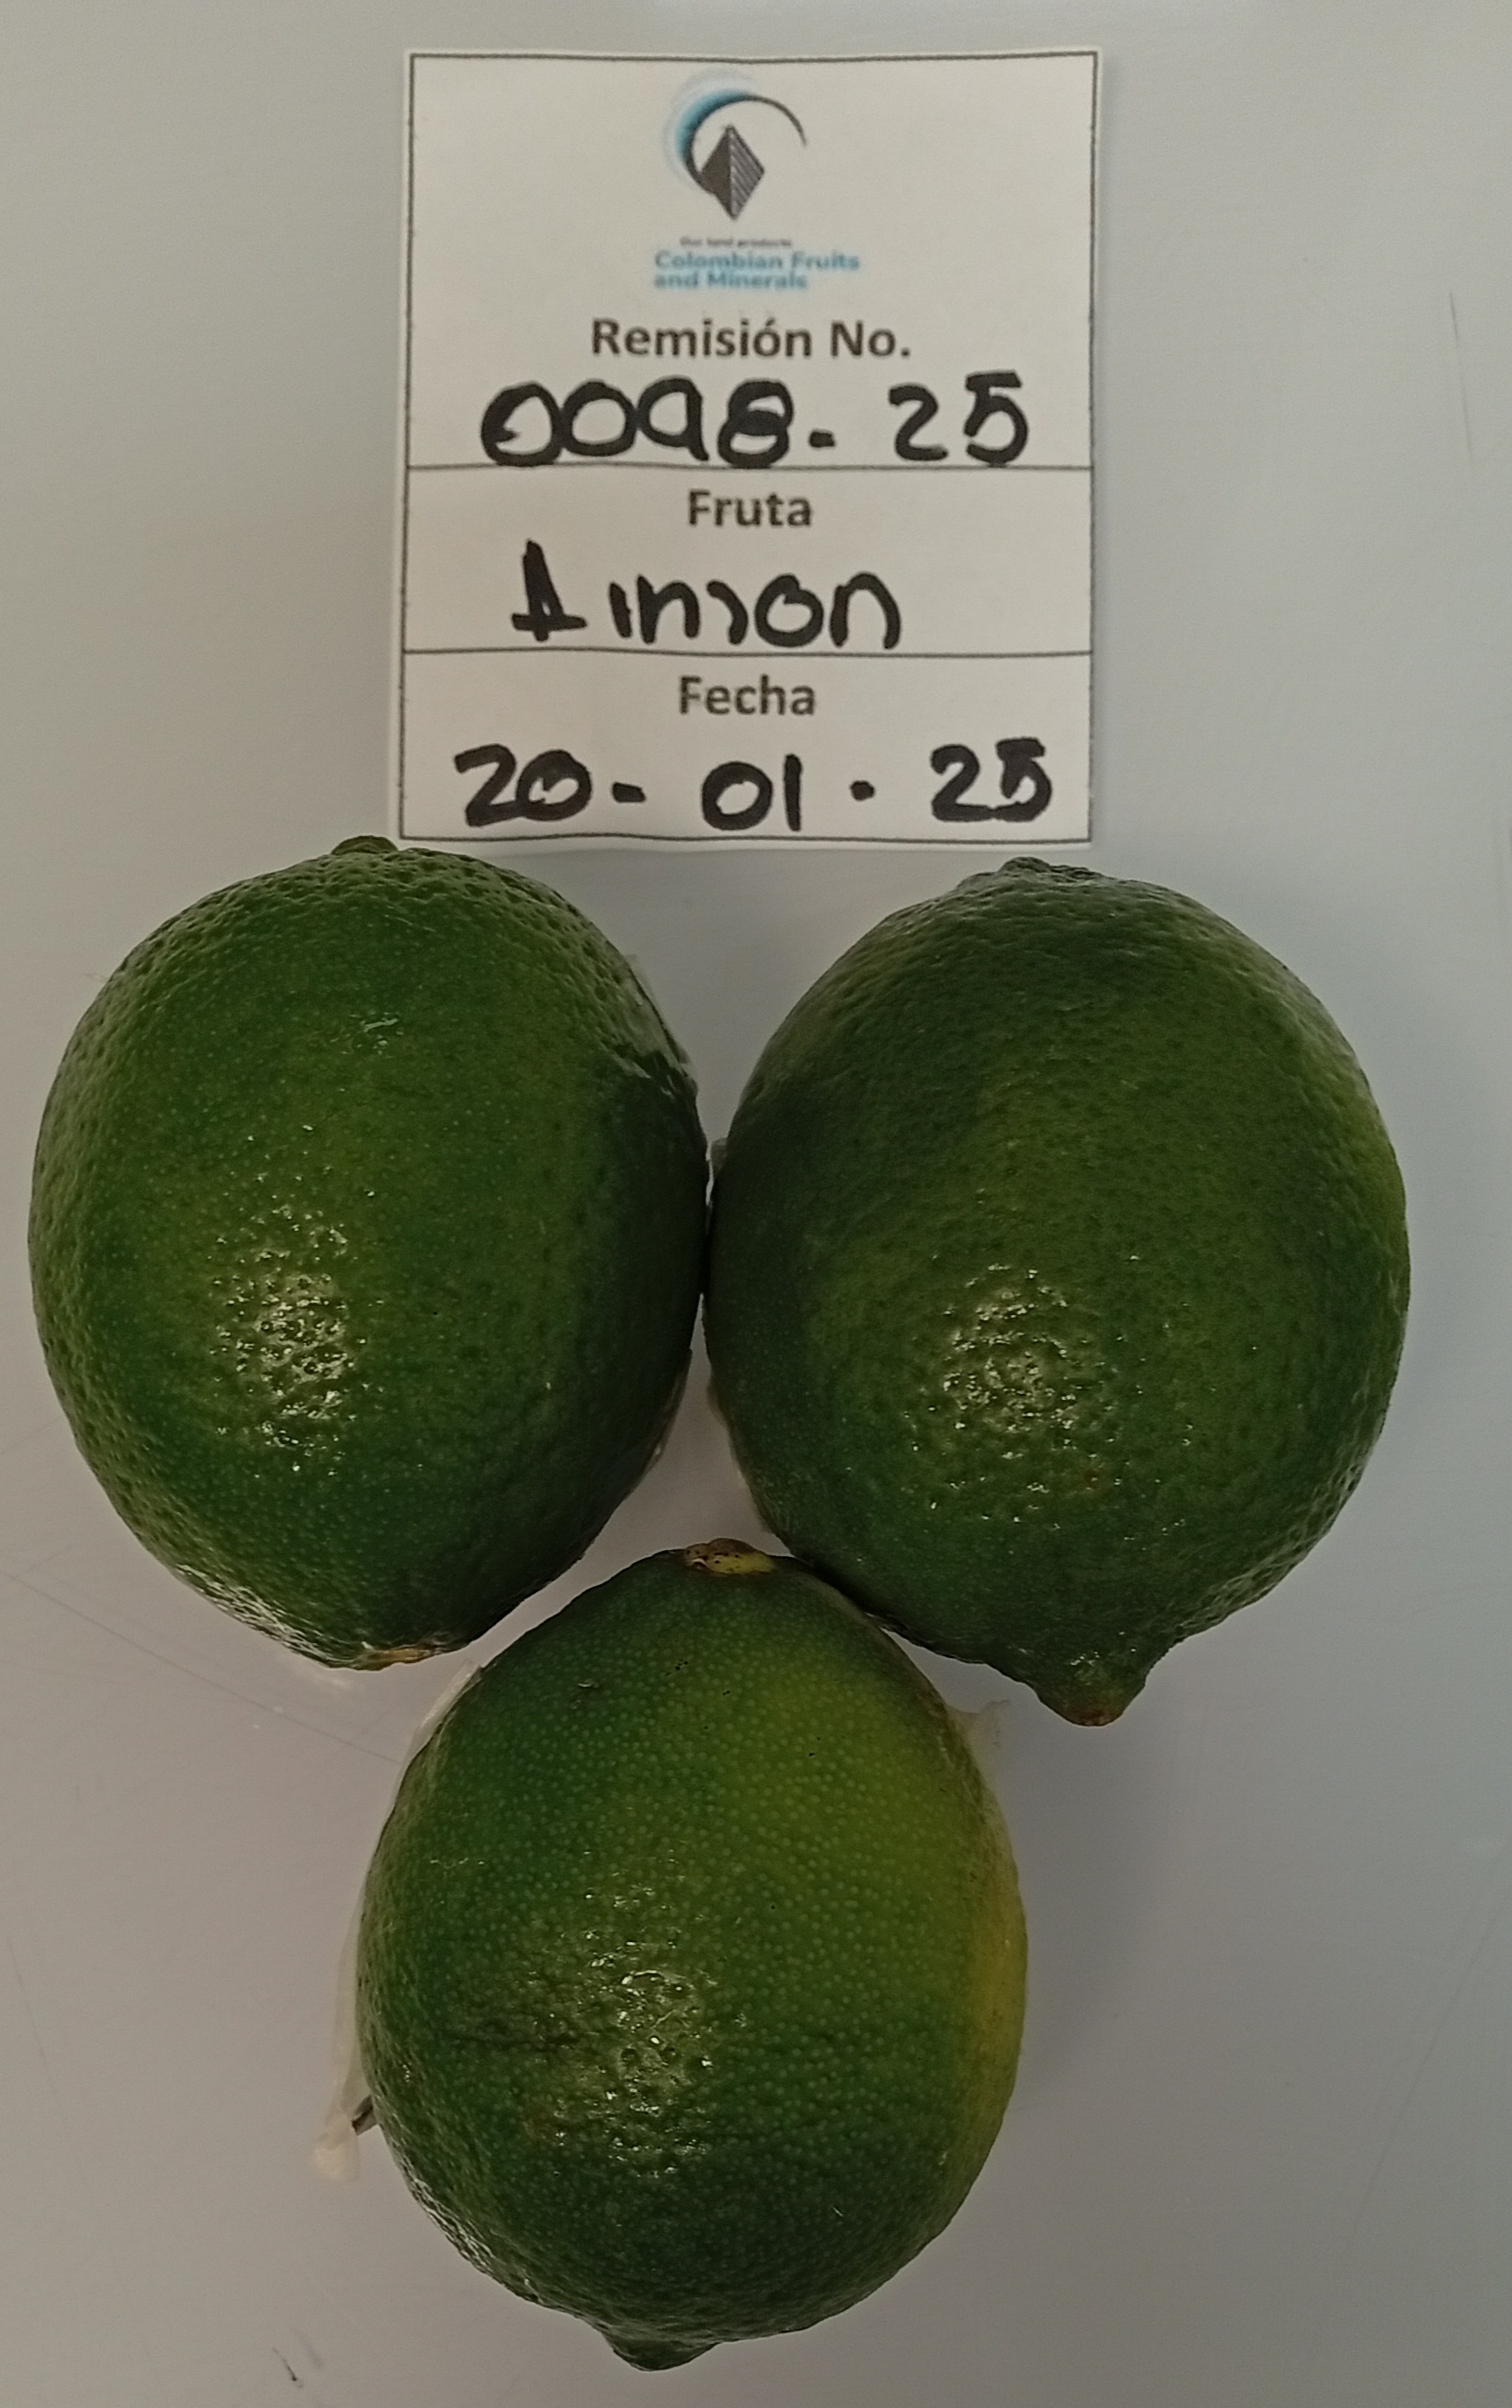 Our land products
Colombian Fruits
and Minerals
Remisión No.
0098-25
Fruta
Limon
Fecha
20-01-25